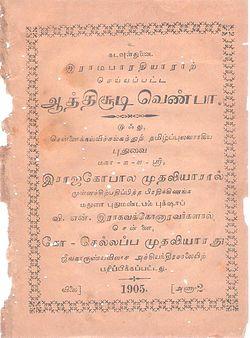 உ
கடவுள்துணை
இராமபாரதியாராற்
செய்யப்பட்ட
ஆத்திசூடி வெண்பா.
இஃது,
சென்னைக்கல்விச்சங்கத்துத் தமிழ்ப்புலவராகிய
புதுவை
மகா-௱-௱-ஸ்ரீ,
இராஜகோபால முதலியாரால்
முன்னச்சிற்பதிப்பித்த பிரதிக்கிணங்க
மதுரை புதுமண்டபம் புக்ஷாப்
வி. என். இராகவக்கோனாரவர்களால்
சென்னை,
கோ - செல்லப்ப முதலியாரது
ஜீவகாருண்யவிலாச அச்சியந்திரசாலையிற்
பதிப்பிக்கப்பட்டது.
விலை] 1905. [அணா-2